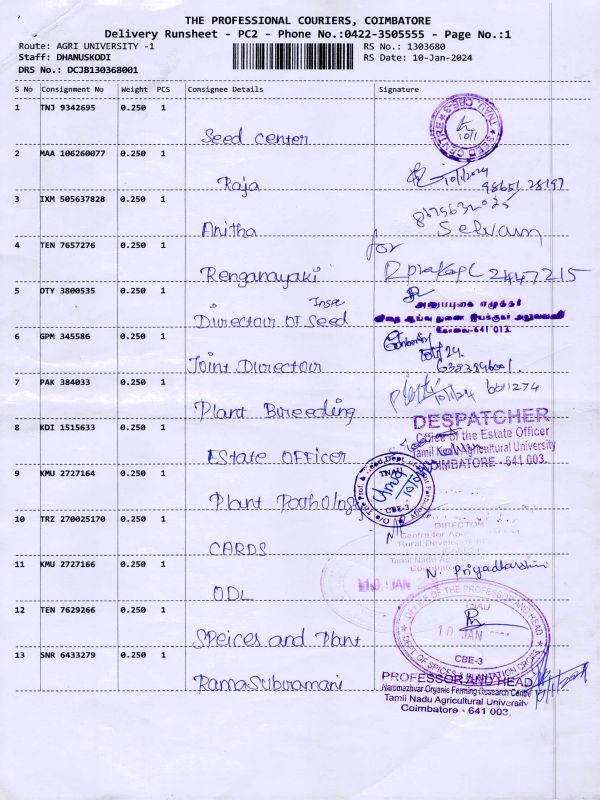 THE PROFESSIONAL COURIERS, COIMBATORE
Delivery Runsheet - PC2 - Phone No.:0422-3505555 - Page No.:1
Route: AGRI UNIVERSITY -1 RS No.: 1303680
Staff: DHANUSKODI RS Date: 10-Jan-2024
DRS No.: DCJB130368001
S No Consignment No Weight PCS Consignee Details Signature
1 TNJ 9342695 0.250 1
Seed Center
TNAU, CBE-3
SEED CENTRE
10/1
2 MAA 106260077 0.250 1
Raja
10/1/2024
98651 28197
3 IXM 505637828 0.250 1
Anitha
Selvam
4 TEN 7657276 0.250 1
for
Renganayaki
2447215
5 OTY 3800535 0.250 1
Inspe
Directour Of Seed
அனுப்புகை எழுத்தர்
விதை ஆய்வு துணை இயக்குநர் அலுவலகம்
கோவை-641 013.
6 GPM 345586 0.250 1
Joint Directour
7 PAK 384033 0.250 1
Plant Bureeding
10/1/24 6611274
8 KDI 1515633 0.250 1
Estate Officer
DESPATCHER
Office of the Estate Officer
Tamil Nadu Agricultural University
COIMBATORE - 641 003.
9 KMU 2727164 0.250 1
Plant Pathology
TNAU
CBE-3
10 TRZ 270025170 0.250 1
CARDS
DIRECTOR
Rural Development
11 KMU 2727166 0.250 1
ODL
N. Priyadharshini
JAN
12 TEN 7629266 0.250 1
Speices and Plant
OFFICE OF THE PROFESSOR AND HEAD
TNAU
10 JAN
CBE-3
DEPT. OF SPICES & PLANTATION CROPS
13 SNR 6433279 0.250 1
RamaSuburamani
PROFESSOR AND HEAD
Naromazhvar Organic Ferming Research Centre
Tamil Nadu Agricultural University
Coimbatore - 641 003.